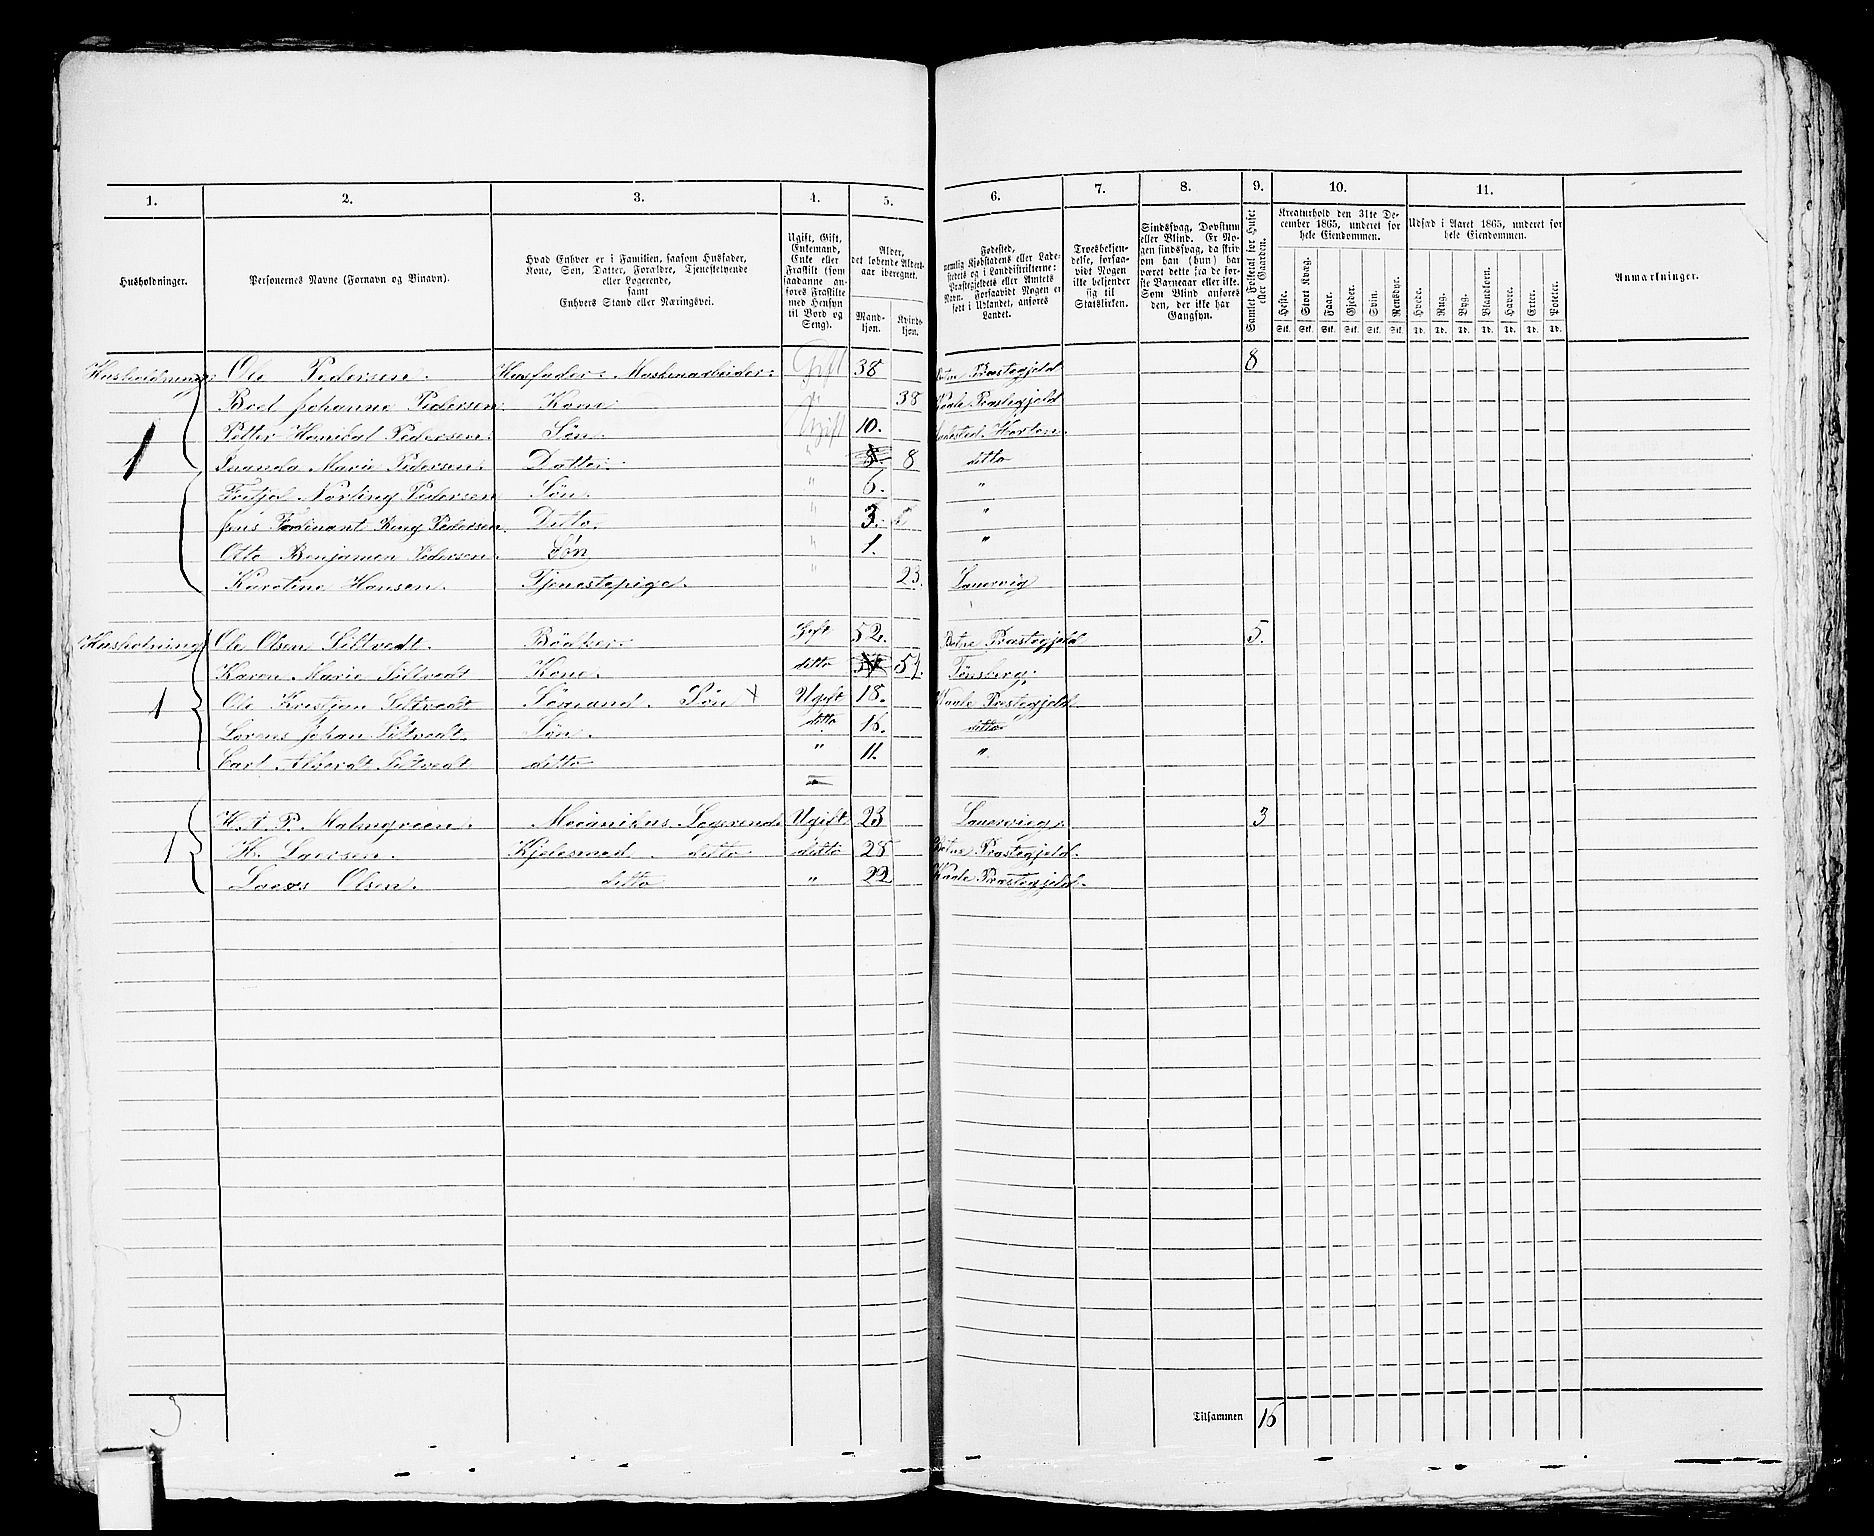 1. 2. 3. 4. 5. 6. 7. 8. 9. 10. 11.
Husholdninger.
Personernes Navne (Fornavn og Binavn).
Hvad Enhver er i Familien, saasom Husfader,
Kone, Søn, Datter, Forældre, Tjenestetyende
eller Logerende,
samt
Enhvers Stand eller Næringsvei.
Ugift, Gift,
Enkemand,
Enke eller
Fraskilt (som
saadanne an-
føres Fraskilte
med Hensyn
til Bord og
Seng).
Alder,
det løbende Alders-
aar iberegnet.
Mand-
kjøn.
Kvinde-
kjøn.
Fødested,
nemlig Kjøbstadens eller Lade-
stedets og i Landdistrikterne:
Præstegjeldets eller Amtets
Navn. Forsaavidt Nogen er
født i Udlandet, anføres
Landet.
Troesbekjen-
delse, forsaa-
vidt Nogen
ikke bekjender
sig til
Statskirken.
Sindssvag, Døvstum
eller Blind. Er No-
gen sindssvag, da skriv
om han (hun) har
været dette fra de før-
ste Barneaar eller ikke.
Som Blind anføres
den, der ikke har
Gangsyn.
Samlet Folketal for Huset
eller Gaarden.
Kreaturhold den 31te De-
cember 1865, underet for
hele Eiendommen.
Heste. Stort Kvæg. Faar. Gjeder. Svin. Rensdyr.
Stk. Stk. Stk. Stk. Stk. Stk.
Udsæd i Aaret 1865, underet for
hele Eiendommen.
Hvede. Rug. Byg. Blandkorn. Havre. Erter. Poteter.
Td. Td. Td. Td. Td. Td. Td.
Anmærkninger.
Husholdninger Ole Pedersen. Husfader. Maskenarbeider. Gift 38 Botne Præstegjeld 8
Boel Johanne Pedersen. Kone. " 38 Vaale Præstegjeld
1 Petter Hanibal Pedersen. Søn. Ugift 10. Ladested Horten.
Marie Pedersen. Datter. " 8 ditto
Fritjof Norling Pedersen Søn. " 6. "
Jens Ferdinant Pedersen. Ditto. " 3. "
Otto Benjamen Pedersen. Søn " 1. "
Karoline Hansen. Tjenestepige. " 23. Laurvig
Husholdning Ole Olsen Siltvedt. Bödker. Gift 52. Botne Præstegjeld 5.
Karen Marie Siltvedt Kone. ditto Tønsberg.
1 Ole Kristjan Siltvedt Sømand. Søn × Ugift 18. Vaale Prestegjeld
Lorens Johan Siltvedt. Søn. ditto 16. ditto
Carl Alberdt Siltvedt ditto " 11. "
H. A. P. Malmgreen. Mecanikus Logerend. Ugift 23 Laurvig. 3
1 H. Larsen. Kjelesmed. ditto ditto 28 Botne Præstegjeld.
Olsen. ditto " 22 Vaale Præstegjeld.
3
Tilsammen 16